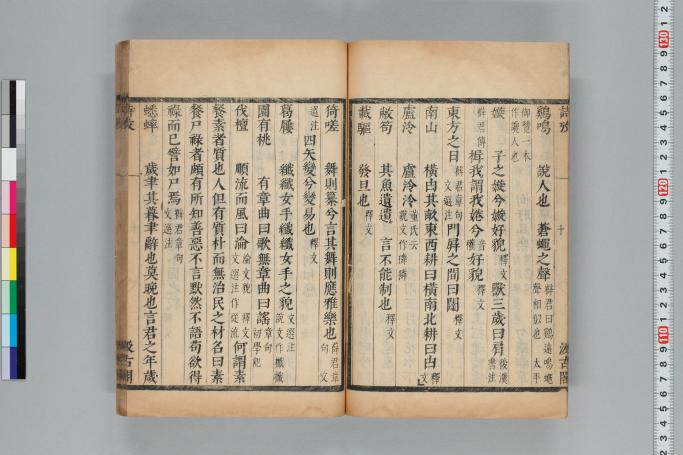 詩攷
十
汲古閣
鷄鳴　說人也　蒼蠅之聲 薛君曰鷄遠鳴蠅聲相似也 太平御覽一本作讒人也
嫙　子之嫙兮嫙好貌 釋文 獸三歲曰肩 後漢書注
薛君傳 揖我謂我婘兮 音權 好貌 釋文
東方之日 薛君章句 文選注 門屛之間曰闥 釋文
南山　橫由其畝東西耕曰橫南北耕曰由 釋文
盧泠　盧泠泠 董氏云說文作獜獜
敝笱　其魚遺遺　言不能制也 釋文
載驅　發旦也 釋文
猗嗟　舞則纂兮言其舞則應雅樂也 薛君章句 文選注 四矢變兮變易也 釋文
葛屨　纎纎女手纎纎女手之貌 文選注 說文作攕攕
園有桃　有章曲曰歌無章曲曰謠 章句 初學記
伐檀　順流而風曰淪 釋文 文選注作從流 何謂素
餐素者質也人但有質朴而無治民之材名曰素
餐尸祿者頗有所知善惡不言默然不語苟欲得
祿而已譬如尸焉 薛君章句 文選注
蟋蟀　歲聿其暮聿辭也莫晚也言君之年歲
詩攷
汲古閣